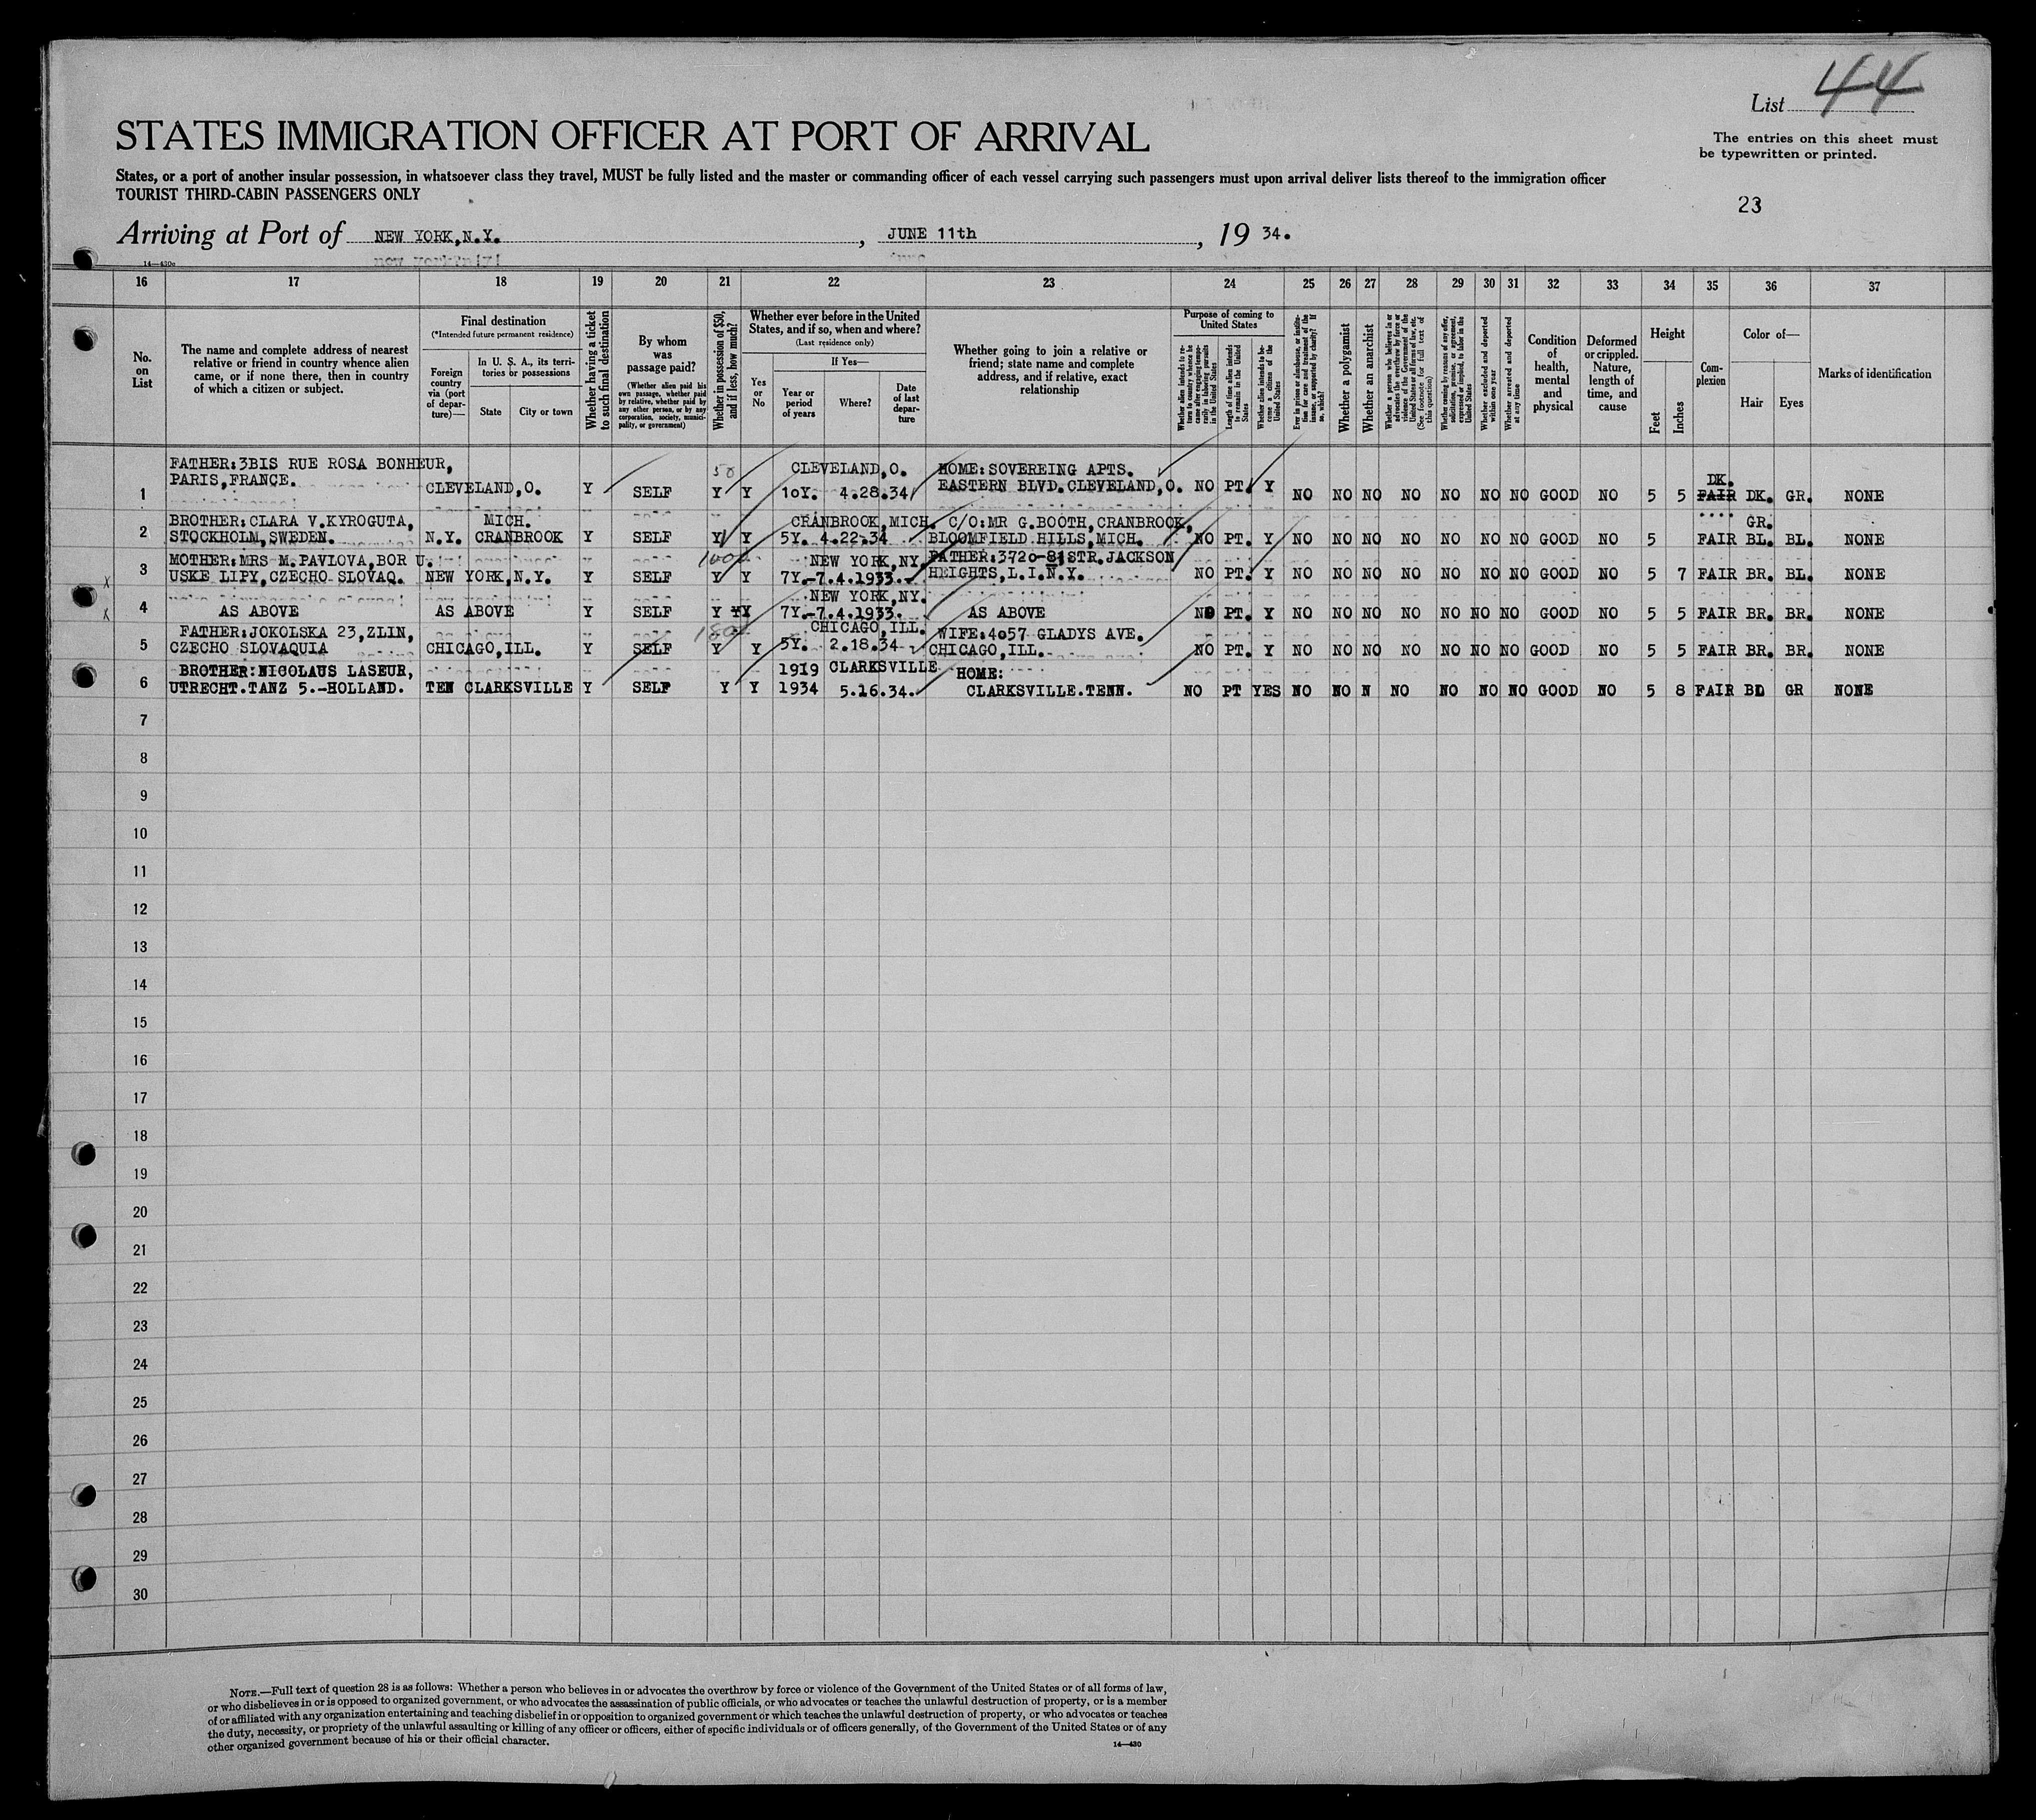 44
List
STATES IMMIGRATION OFFICER AT PORT OF ARRIVAL
The entries on this sheet must
be typewritten or printed.
States, or a port of another insular possession, in whatsoever class they travel, MUST be fully listed and the master or commanding officer of each vessel carrying such passengers must upon arrival deliver lists thereof to the immigration officer
TOURIST THIRD-CABIN PASSENGERS ONLY
23
Arriving at Port of NEW YORK,N.Y. , JUNE 11th , 19 34.
16 17 18 19 20 21 22 23 24 25 26 27 28 29 30 31 32 33 34 35 36 37
No. on List
The name and complete address of nearest relative or friend in country whence alien came, or if none there, then in country of which a citizen or subject.
Final destination
(*Intended future permanent residence)
Foreign country via (port of departure)—
In U. S. A., its territories or possessions
State
City or town
Whether having a ticket to such final destination
By whom was passage paid?
(Whether alien paid his own passage, whether paid by relative, whether paid by any other person, or by any corporation, society, municipality, or government)
Whether in possession of $50, and if less, how much?
Whether ever before in the United States, and if so, when and where?
(Last residence only)
Yes or No
If Yes—
Year or period of years
Where?
Date of last departure
Whether going to join a relative or friend; state name and complete address, and if relative, exact relationship
Purpose of coming to United States
Whether alien intends to return to country whence he came after engaging temporarily in laboring pursuits in the United States
Length of time alien intends to remain in the United States
Whether alien intends to become a citizen of the United States
Ever in prison or almshouse, or institution for care and treatment of the insane, or supported by charity? If so, which?
Whether a polygamist
Whether an anarchist
Whether a person who believes in or advocates the overthrow by force or violence of the Government of the United States or all forms of law, etc. (See footnote for full text of this question)
Whether coming by reason of any offer, solicitation, promise, or agreement, expressed or implied, to labor in the United States
Whether excluded and deported within one year
Whether arrested and deported at any time
Condition of health, mental and physical
Deformed or crippled. Nature, length of time, and cause
Height
Feet
Inches
Complexion
Color of—
Hair
Eyes
Marks of identification
FATHER:3BIS RUE ROSA BONHEUR, 50 CLEVELAND,O. HOME:SOVEREING APTS. DK.
1 PARIS,FRANCE. CLEVELAND,O. Y SELF Y Y 10Y. 4.28.34 EASTERN BLVD.CLEVELAND,O. NO PT. Y NO NO NO NO NO NO NO GOOD NO 5 5 FAIR DK. GR. NONE
BROTHER:CLARA V.KYROGUTA, MICH. CRANBROOK,MICH. C/O:MR G.BOOTH,CRANBROOK, GR.
2 STOCKHOLM,SWEDEN. N.Y. CRANBROOK Y SELF Y Y 5Y. 4.22.34 BLOOMFIELD HILLS,MICH. NO PT. Y NO NO NO NO NO NO NO GOOD NO 5 5 FAIR BL. BL. NONE
MOTHER:MRS M.PAVLOVA,BOR U. 1000 NEW YORK,NY. FATHER:3720-81STR.JACKSON
3 USKE LIPY,CZECHO SLOVAQ. NEW YORK,N.Y. Y SELF Y Y 7Y.-7.4.1933. HEIGHTS,L.I.N.Y. NO PT. Y NO NO NO NO NO NO NO GOOD NO 5 7 FAIR BR. BL. NONE
NEW YORK,NY.
4 AS ABOVE AS ABOVE Y SELF Y Y 7Y.-7.4.1933. AS ABOVE NO PT. Y NO NO NO NO NO NO NO GOOD NO 5 5 FAIR BR. BR. NONE
FATHER:JOKOLSKA 23,ZLIN, CHICAGO,ILL. WIFE:4057 GLADYS AVE.
5 CZECHO SLOVAQUIA CHICAGO,ILL. Y SELF Y Y 5Y. 2.18.34 CHICAGO,ILL. NO PT. Y NO NO NO NO NO NO NO GOOD NO 5 5 FAIR BR. BR. NONE
BROTHER:NICOLAUS LASEUR, 1919 CLARKSVILLE HOME:
6 UTRECHT.TANZ 5.-HOLLAND. TEN CLARKSVILLE Y SELF Y Y 1934 5.16.34. CLARKSVILLE.TENN. NO PT YES NO NO N NO NO NO NO GOOD NO 5 8 FAIR BL GR NONE
7
8
9
10
11
12
13
14
15
16
17
18
19
20
21
22
23
24
25
26
27
28
29
30
NOTE.—Full text of question 28 is as follows: Whether a person who believes in or advocates the overthrow by force or violence of the Government of the United States or of all forms of law,
or who disbelieves in or is opposed to organized government, or who advocates the assassination of public officials, or who advocates or teaches the unlawful destruction of property, or is a member
of or affiliated with any organization entertaining and teaching disbelief in or opposition to organized government or which teaches the unlawful destruction of property, or who advocates or teaches
the duty, necessity, or propriety of the unlawful assaulting or killing of any officer or officers, either of specific individuals or of officers generally, of the Government of the United States or of any
other organized government because of his or their official character.
14—430